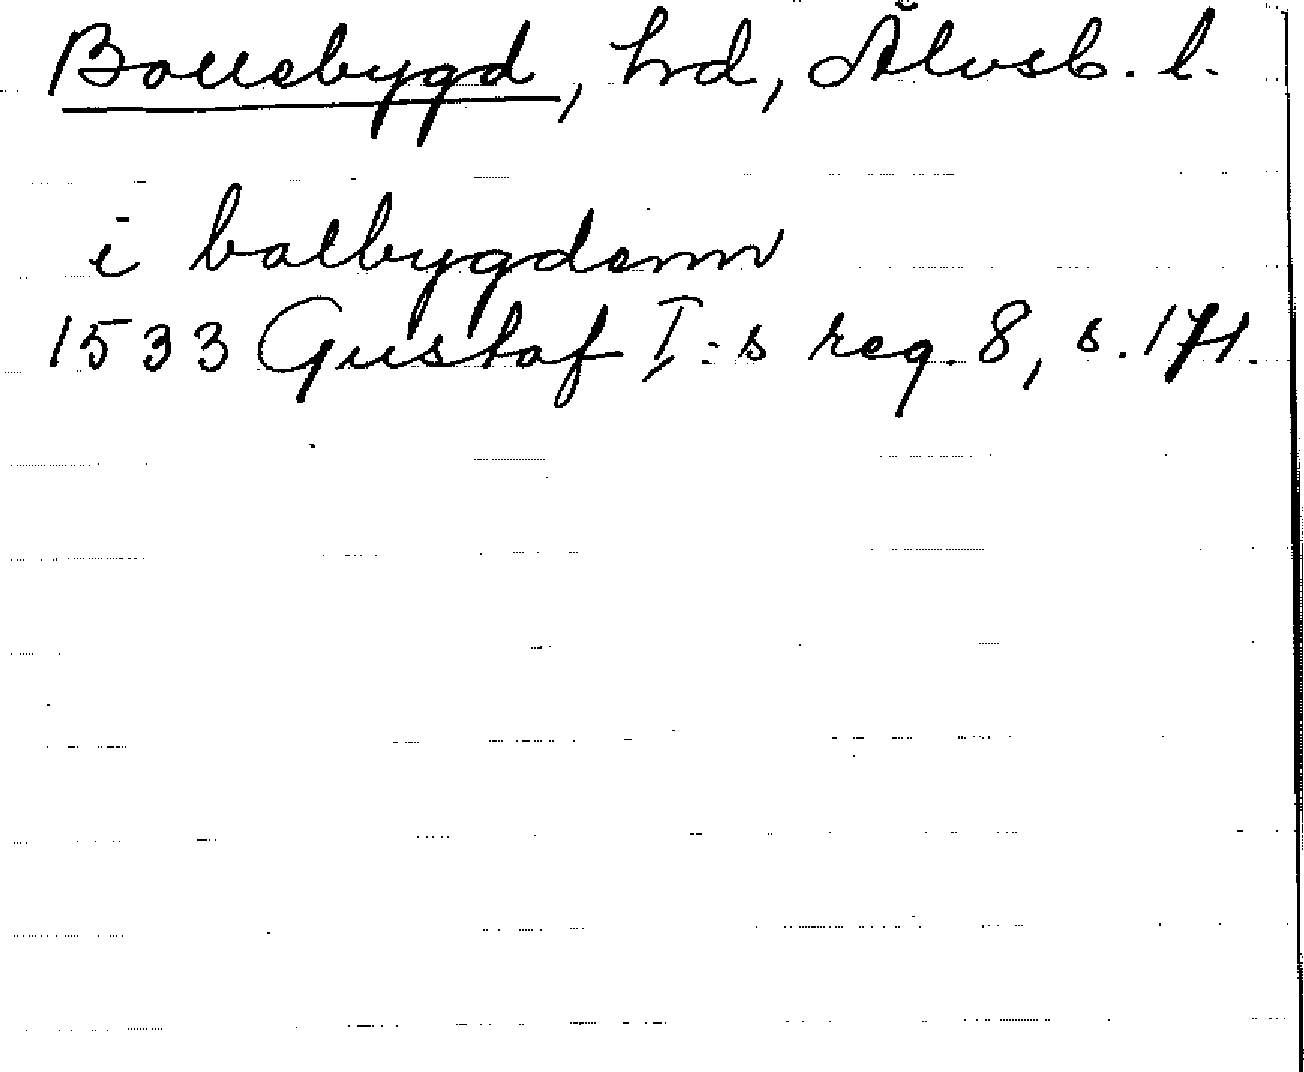 Bollebygd, hd, Älvsb. l.
i bolbygdenn
1533 Gustaf I:s reg. 8, s. 171.